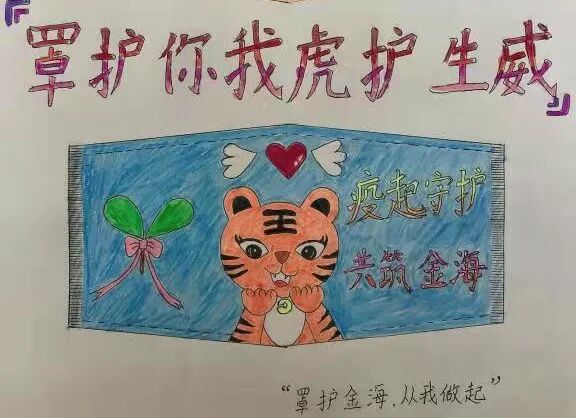 『罩护你我虎护生威』
王
疫起守护
共筑金海
“罩护金海，从我做起”